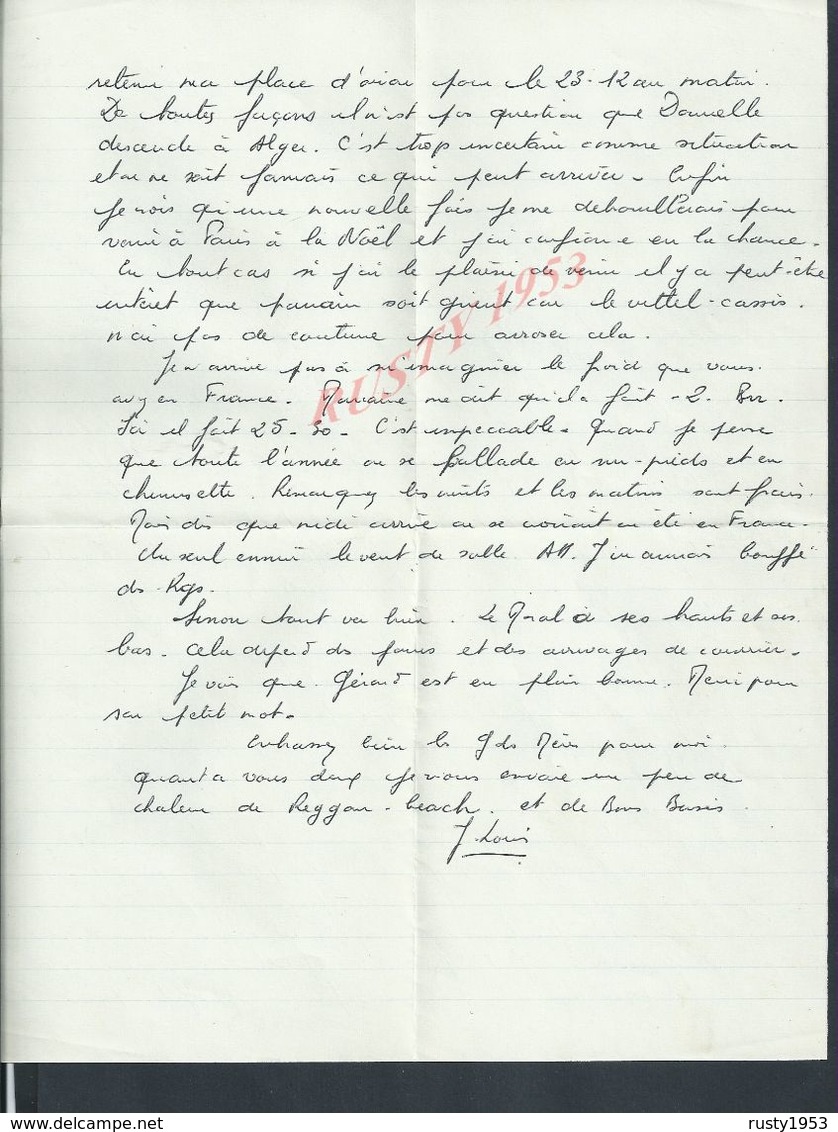 retenir ma place d'avion pour le 23-12 au matin.
De toutes façons il n'est pas question que Danielle
descende à Alger. C'est trop incertain comme situation
et on ne sait jamais ce qui peut arriver. Enfin
je vois qu'une nouvelle fois je me débrouillerais pour
venir à Paris à la Noël et j'ai confiance en la chance.
En tout cas si j'ai le plaisir de venir il y a peut-être
intérêt que parrain soit car le vittel-cassis.
n'ai pas de coutume pour arroser cela.
Je n'arrive pas à m'imaginer le froid que vous
avez en France. Marraine me dit qu'il a fait -2. Brr.
Ici il fait 25-30. C'est impeccable. Quand je pense
que toute l'année on se ballade en nu-pieds et en
chemisette. Remarquez les nuits et les matins sont frais.
Mais dès que midi arrive on se croirait en été en France.
Un seul ennui le vent de sable. Ah. J'en aurais bouffé
ds Kgs.
Sinon tout va bien. Le Moral a ses hauts et ses
bas. Cela dépend ds jours et des arrivages de courrier.
Je vois que Gérard est en plein bonne. Merci pour
son petit mot.
Embrassez bien ls Gds Mères pour moi.
quant à vous deux je vous envoie un peu de
chaleur de Reggan-beach. et de Bons Baisers
J. Louis
RUSTY 1953
www.delcampe.net
rusty1953